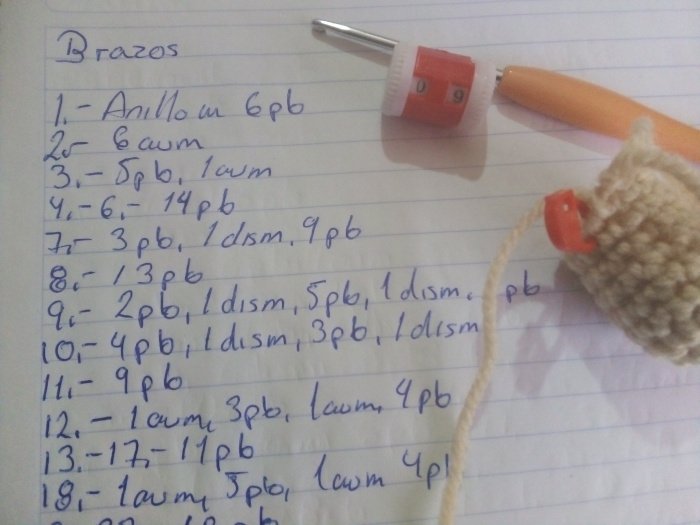 Brazos
1.- Anillo w 6pb
2.- 6 aum
3.- 5pb, 1aum
4.-6.- 14pb
7.- 3pb, 1dism, 9pb
8.- 13pb
9.- 2pb, 1dism, 5pb, 1dism, pb
10.- 4pb, 1dism, 3pb, 1dism
11.- 9pb
12.- 1aum, 3pb, 1aum, 4pb
13.-17.- 11pb
18.- 1aum, 5pb, 1aum 4p
0 9